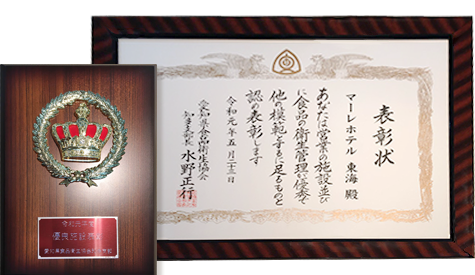 表彰状
マーレホテル 東海 殿
あなたは営業の施設並び
に食品の衛生管理が優秀で
他の模範とするに足るものと
認め表彰します
令和元年五月二十三日
愛知県食品衛生協会
知多支部長 水野正行
令和元年度
優良施設表彰